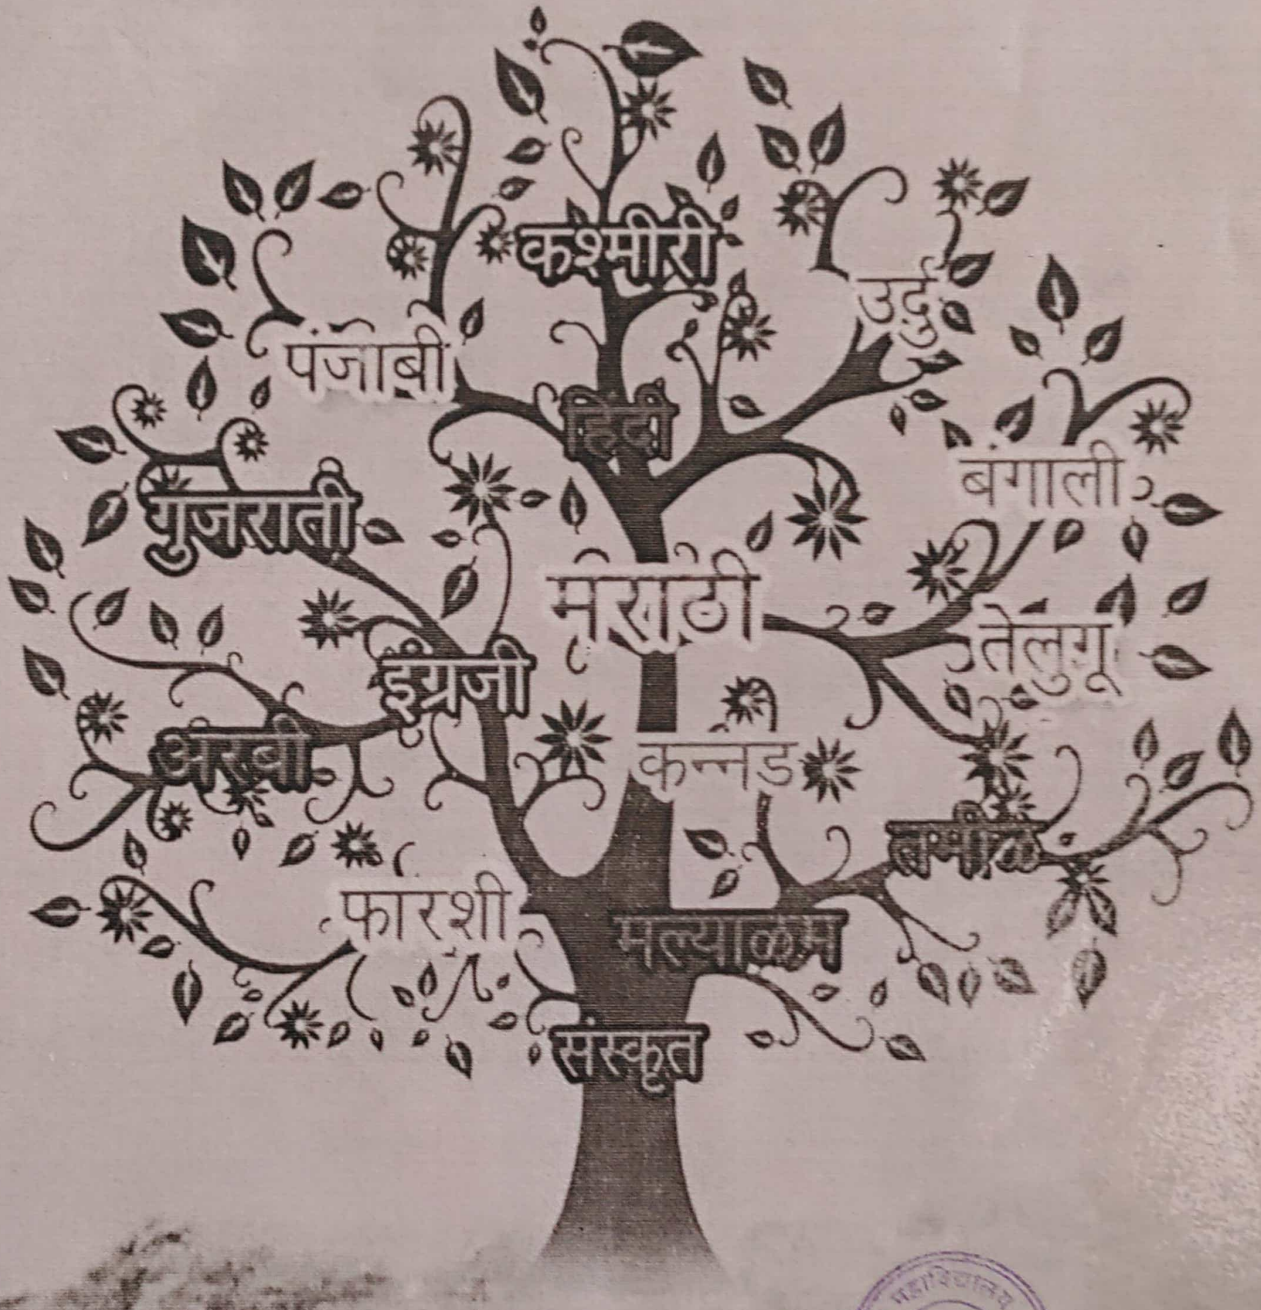 कश्मीरी
उर्दु
पंजाबी
हिंदी
बंगाली
गुजराती
मराठी
तेलुगू
इंग्रजी
अरबी
कन्नड
तमीळ
फारशी
मल्याळम
संस्कृत
महाविद्यालय